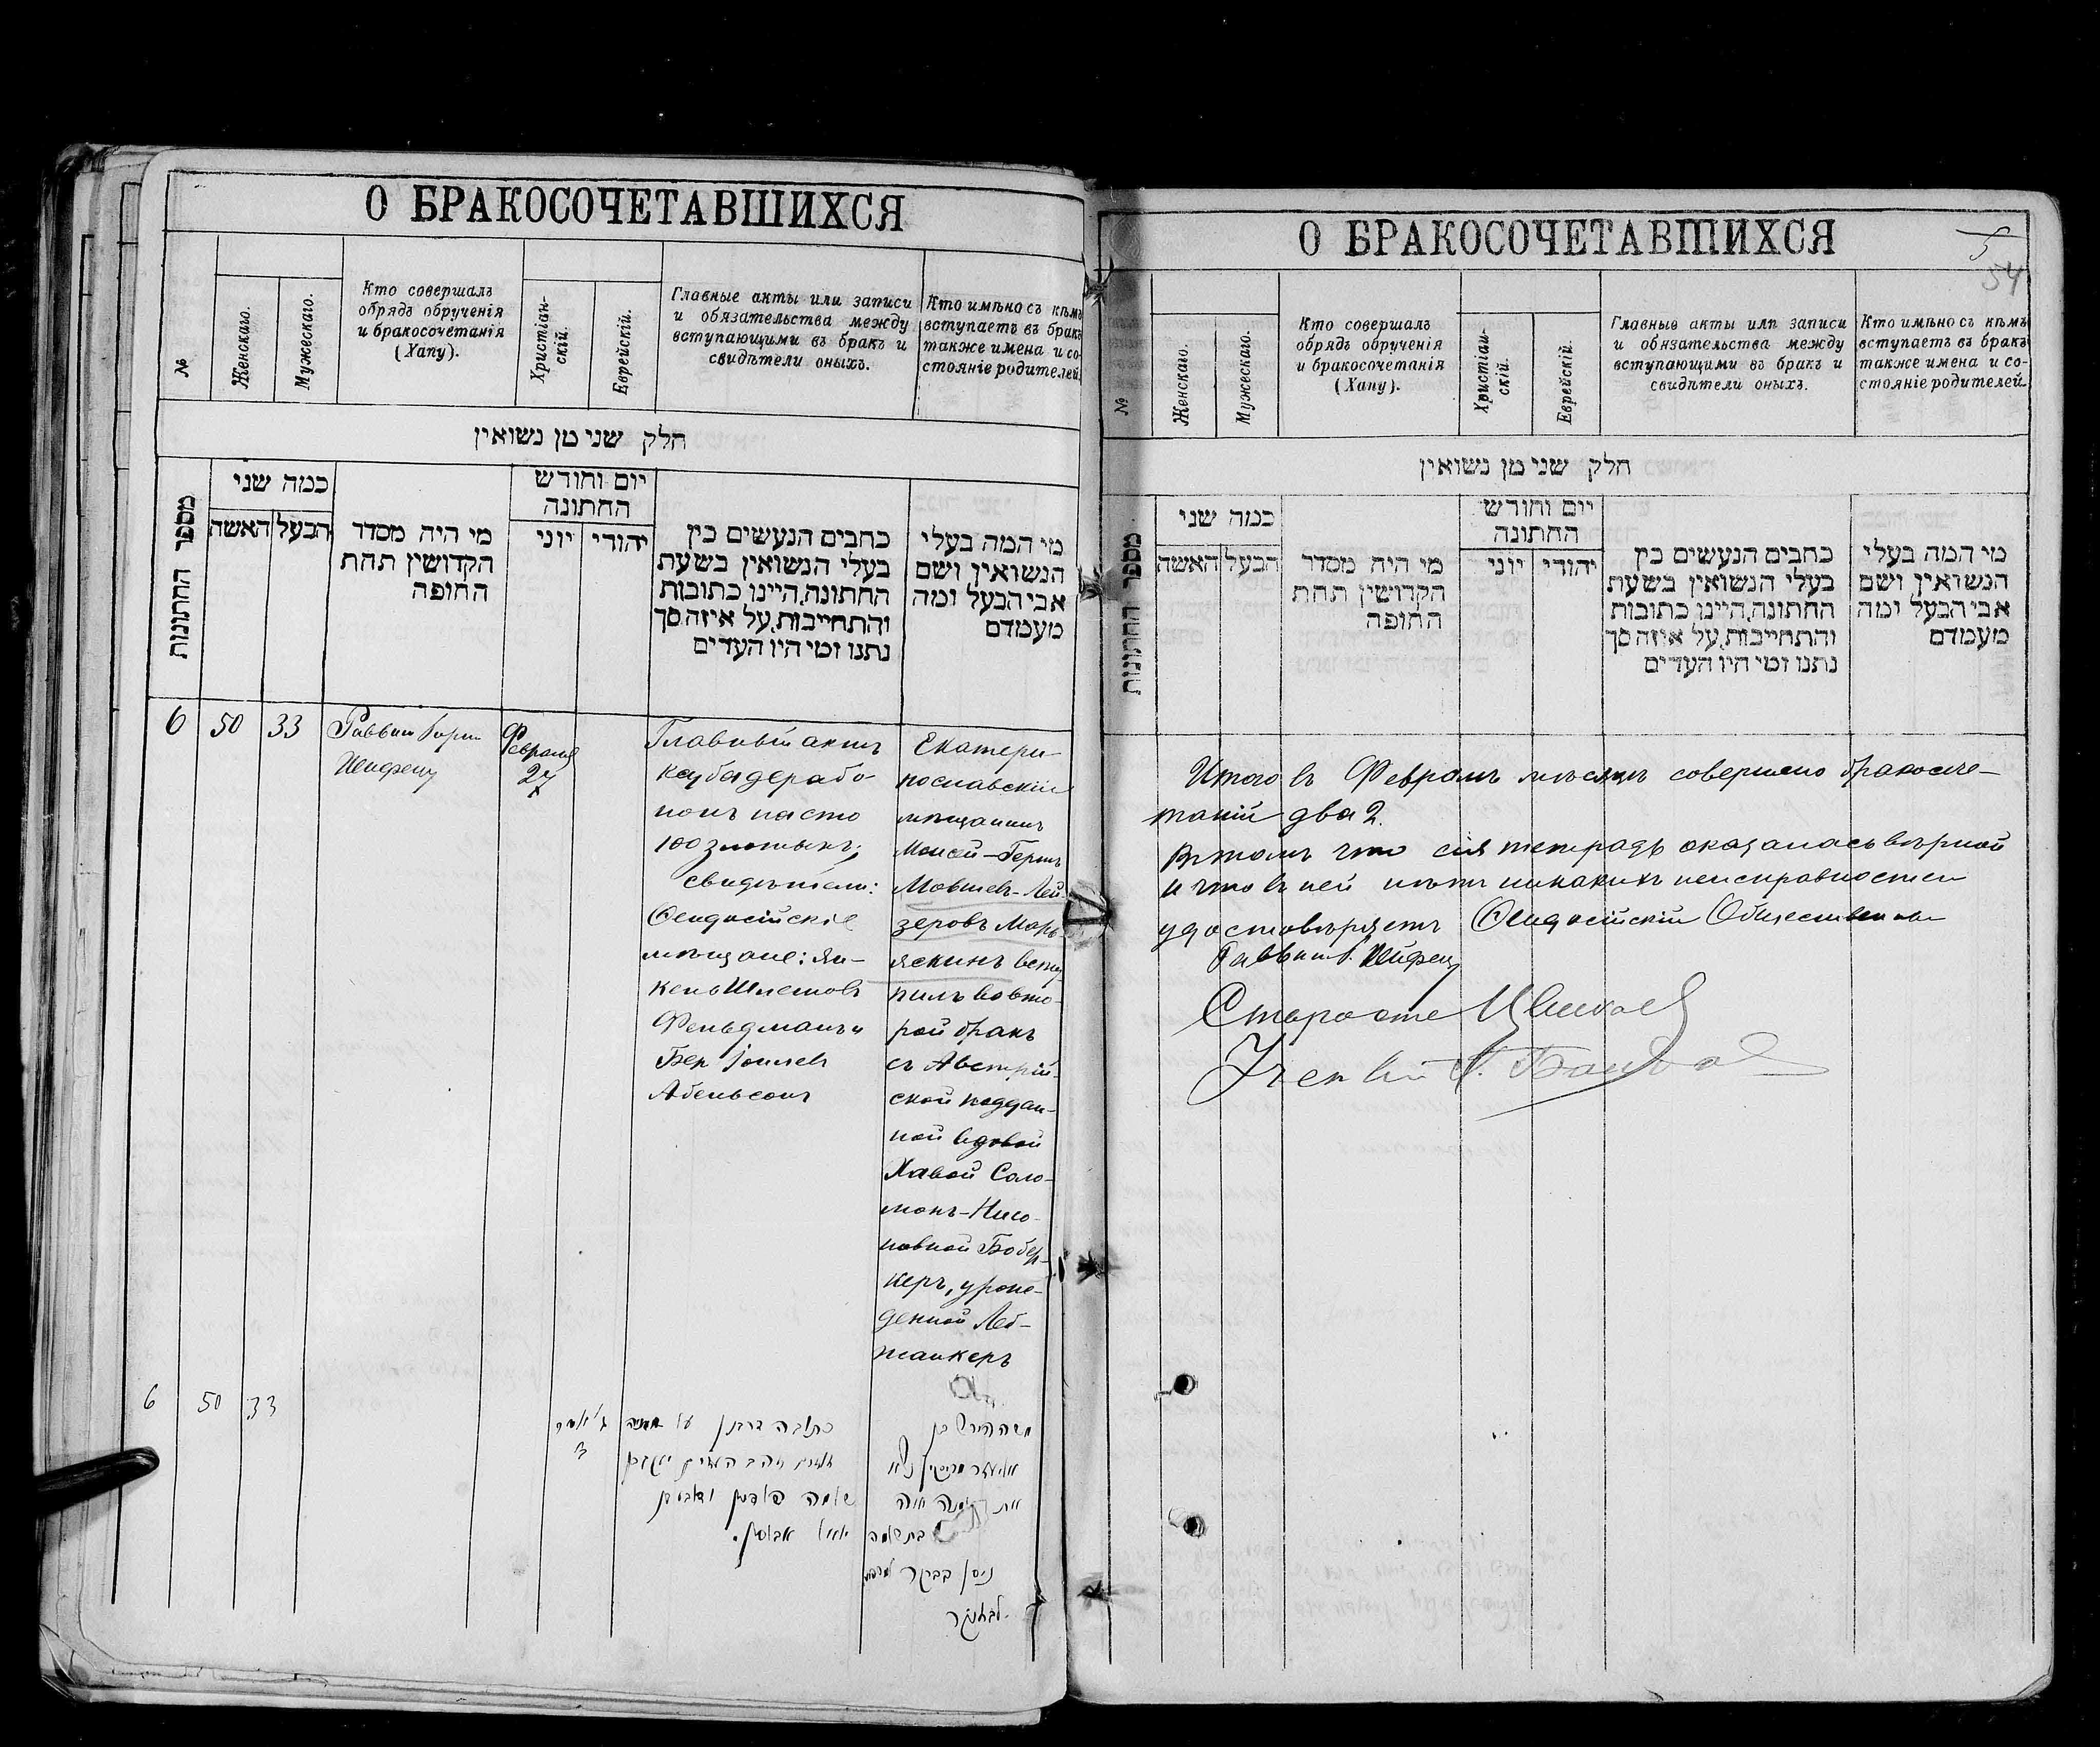 О БРАКОСОЧЕТАВШИХСЯ
№
Женскаго.
Мужескаго.
Кто совершалъ
обрядъ обрученія
и бракосочетанія
(Хапу).
Христіан-
скій.
Еврейскій.
Главные акты или записи
и обязательства между
вступающими въ бракъ и
свидѣтели оныхъ.
Кто имѣно съ кѣмъ
вступаетъ въ бракъ
также имена и со-
стояніе родителей.
חלק שני מן נשואין
מספר החתונות
כמה שני
הבעל האשה
מי היה מסדר
הקדושין תחת
החופה
יום וחודש
החתונה
יהודי יוני
כתבים הנעשים בין
בעלי הנשואין בשעת
החתונה, היינו כתובות
והתחייבות, על איזה סך
נתנו ומי היו העדים
מי המה בעלי
הנשואין ושם
אבי הבעל ומה
מעמדם
6 50 33
Раввин
Шейфецъ
Февраля
27
Главный актъ
кеубадерабо-
нонъ насто
100 злотыхъ;
свидѣтели:
Ѳеодосійскіе
мѣщане: Ян-
кель Шлемовъ
Фельдманъ и
Бер Іоилевъ
Абельсонъ
Екатери
нославскій
мѣщанинъ
Моисей-Гершъ
Мовшевъ-Лей-
зеровъ Марь-
яскинъ всту
пилъ во вто-
рой бракъ
съ Австрій-
ской поддан-
ной вдовой
Хавой Соло-
монъ-Нисо-
новной Бобер-
керъ, урож-
денной Леб-
танкеръ
6 50 33
כתובה דרבנן על
משה הירש בן
את
בת שלמה
ניסן
О БРАКОСОЧЕТАВШИХСЯ
5
54
№
Женскаго.
Мужескаго.
Кто совершалъ
обрядъ обрученія
и бракосочетанія
(Хапу).
Христіан-
скій.
Еврейскій.
Главные акты или записи
и обязательства между
вступающими въ бракъ и
свидѣтели оныхъ.
Кто имѣно съ кѣмъ
вступаетъ въ бракъ
также имена и со-
стояніе родителей.
חלק שני מן נשואין
מספר החתונות
כמה שני
הבעל האשה
מי היה מסדר
הקדושין תחת
החופה
יום וחודש
החתונה
יהודי יוני
כתבים הנעשים בין
בעלי הנשואין בשעת
החתונה, היינו כתובות
והתחייבות, על איזה סך
נתנו ומי היו העדים
מי המה בעלי
הנשואין ושם
אבי הבעל ומה
מעמדם
Итого въ Февралѣ мѣсяцѣ совершено бракосоче-
таній два 2.
Въ томъ что сія тетрадь оказалась вѣрной
и что въ ней нѣтъ никакихъ неисправностей
удостовѣряетъ Ѳеодосійскій Общественный
Раввинъ Шейфецъ
Староста